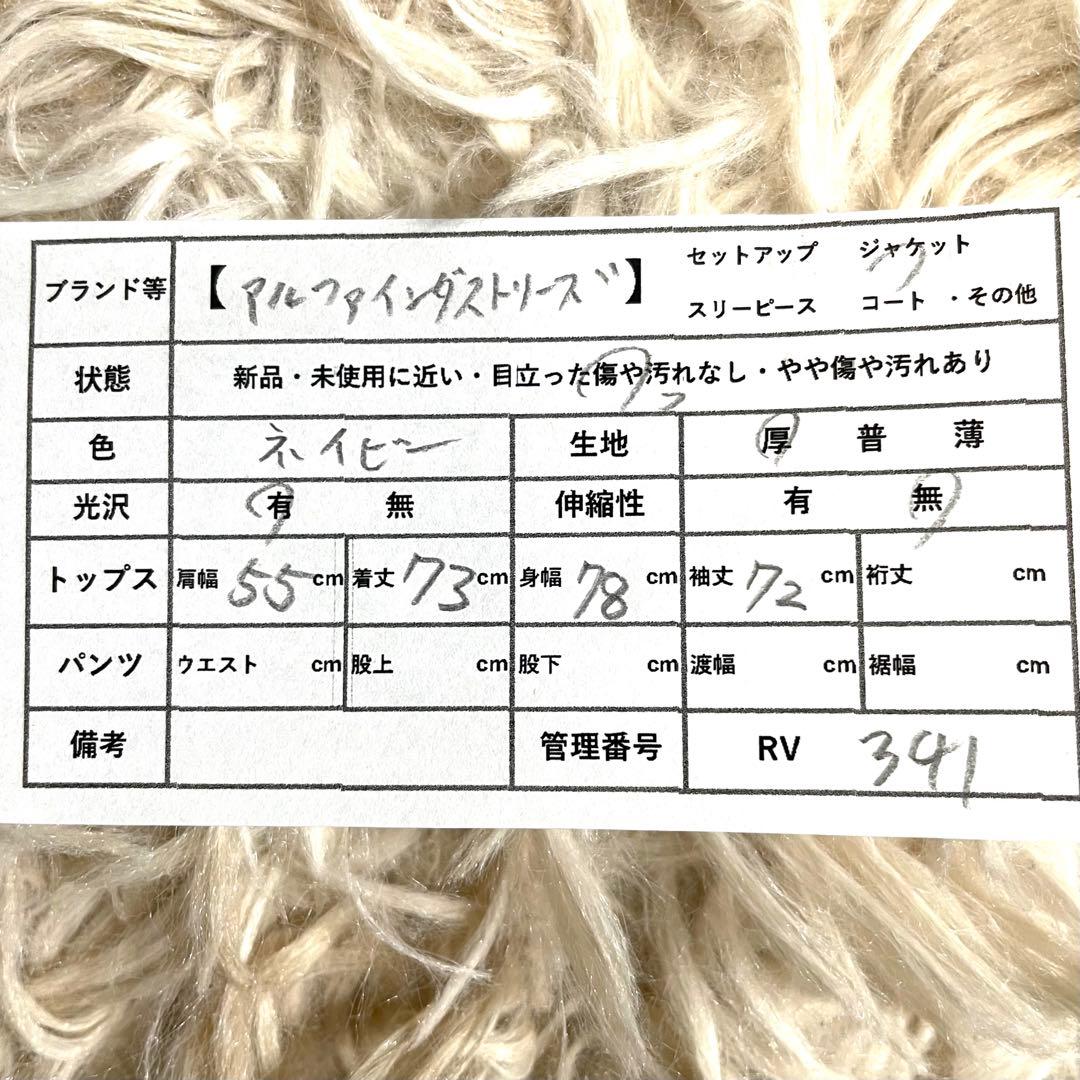 ブランド等 【アルファインダストリーズ】 セットアップ ジャケット
スリーピース コート ・その他
状態 新品・未使用に近い・目立った傷や汚れなし・やや傷や汚れあり
色 ネイビー 生地 厚 普 薄
光沢 有 無 伸縮性 有 無
トップス 肩幅 55 cm 着丈 73 cm 身幅 78 cm 袖丈 72 cm 裄丈 cm
パンツ ウエスト cm 股上 cm 股下 cm 渡幅 cm 裾幅 cm
備考 管理番号 RV 341